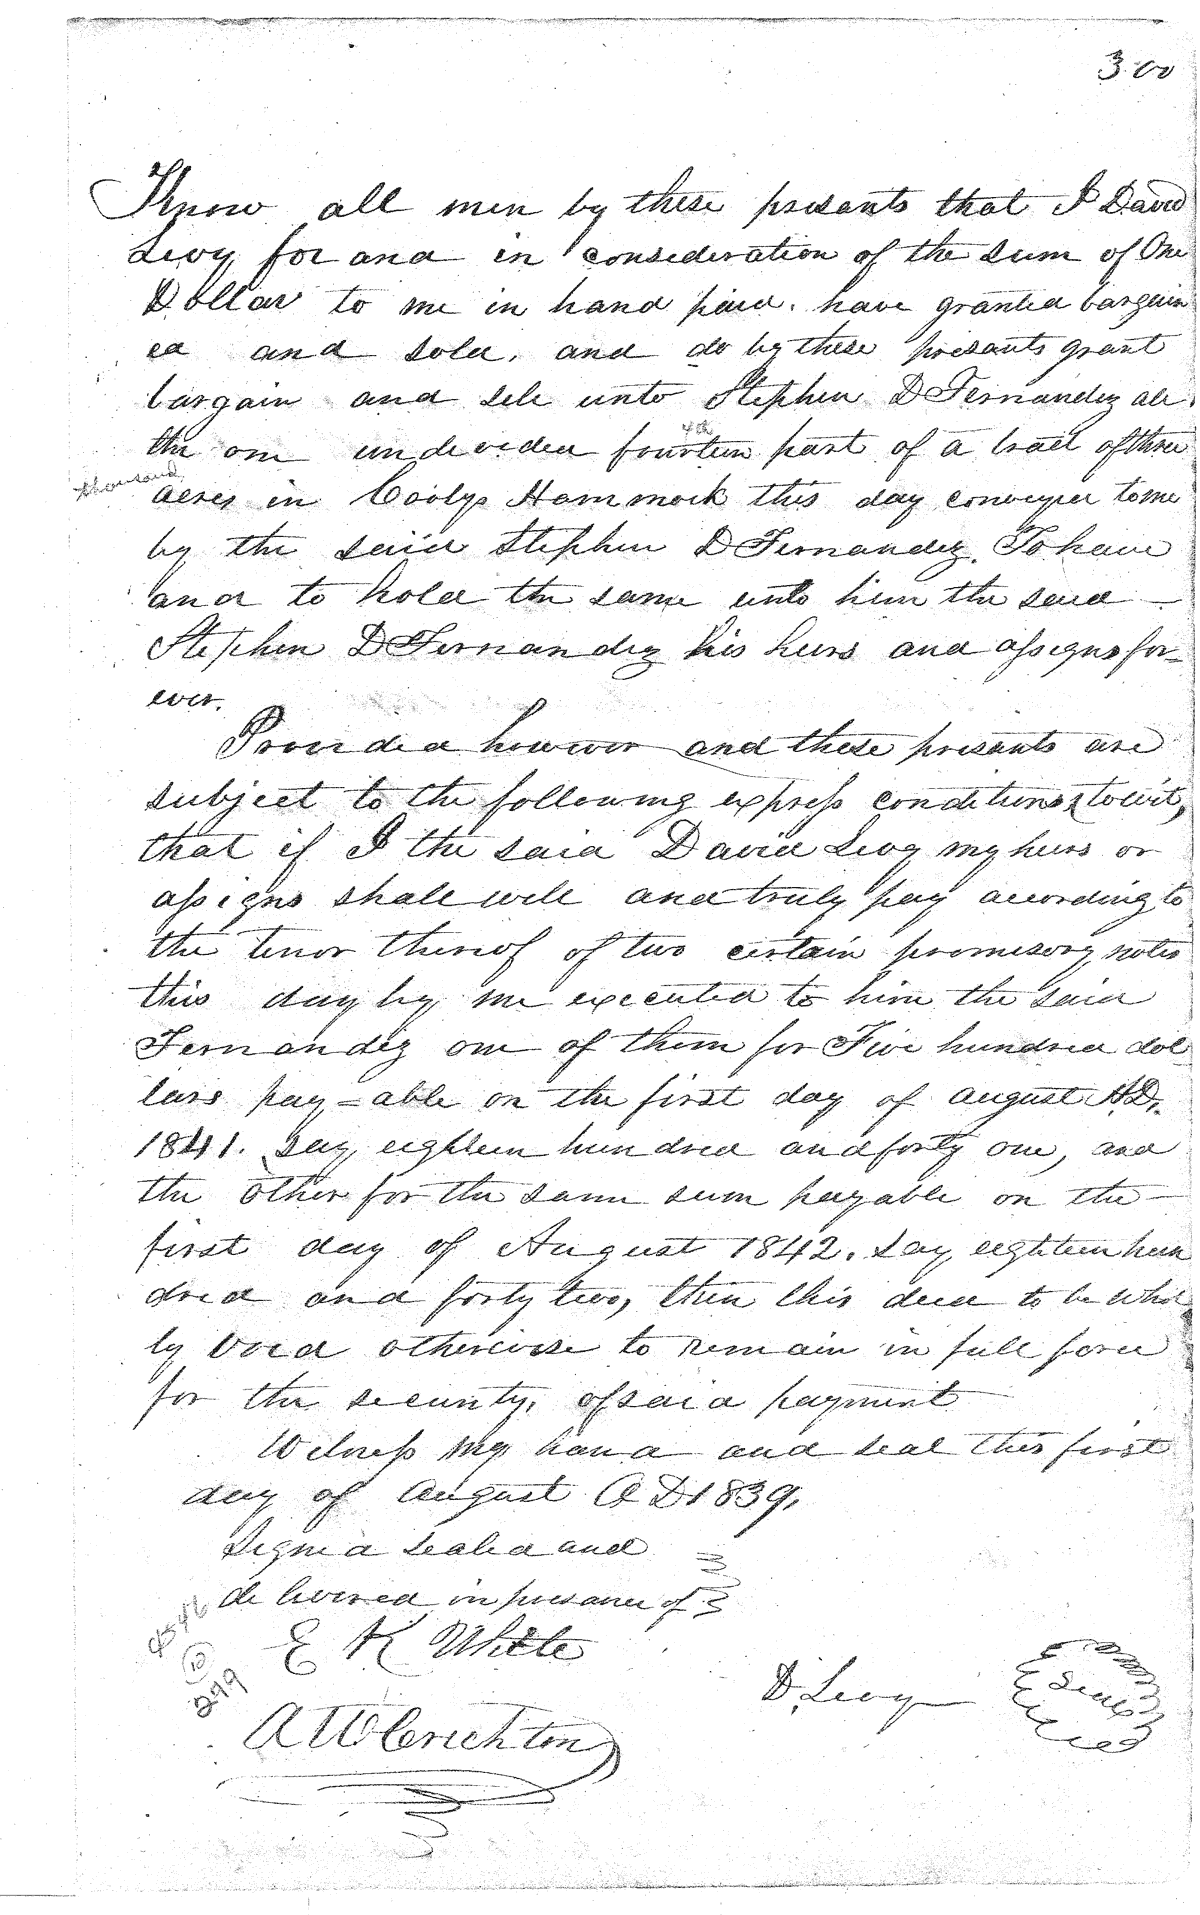 300
Know all men by these presants that I David
Levy for and in consideration of the sum of One
Dollar to me in hand paid. have granted bargain
ed and sold. and do by these presants grant
bargain and sell unto Stephen D Fernandez all
the one undevided fourteen part of a tract of three
th
thousand
acres in Hammock this day conveyed to me
by the said Stephen D Fernandez. To have
and to hold the same unto him the said —
Stephen D Fernandez his heirs and assigns for-
ever.
Provided however and these presants are
subject to the following express conditions, towit,
that if I the said David Levy my heirs or
assigns shall well and truly pay according to
the tenor thereof of two certain promisory notes
this day by me executed to him the said
Fernandez one of them for Five hundred dol
lars pay=able on the first day of august A.D.
1841. Say eighteen hundred and forty one, and
the other for the same sum payable on the —
first day of August 1842. Say eighteen hun
dred and forty two, then this deed to be whol
ly void otherwise to remain in full force
for the security, of said payment
Witness my hand and seal this first
day of August A D 1839,
Signed sealed and
delivered in presance of
E K White
D. Levy
Seal
299
A W Crichton